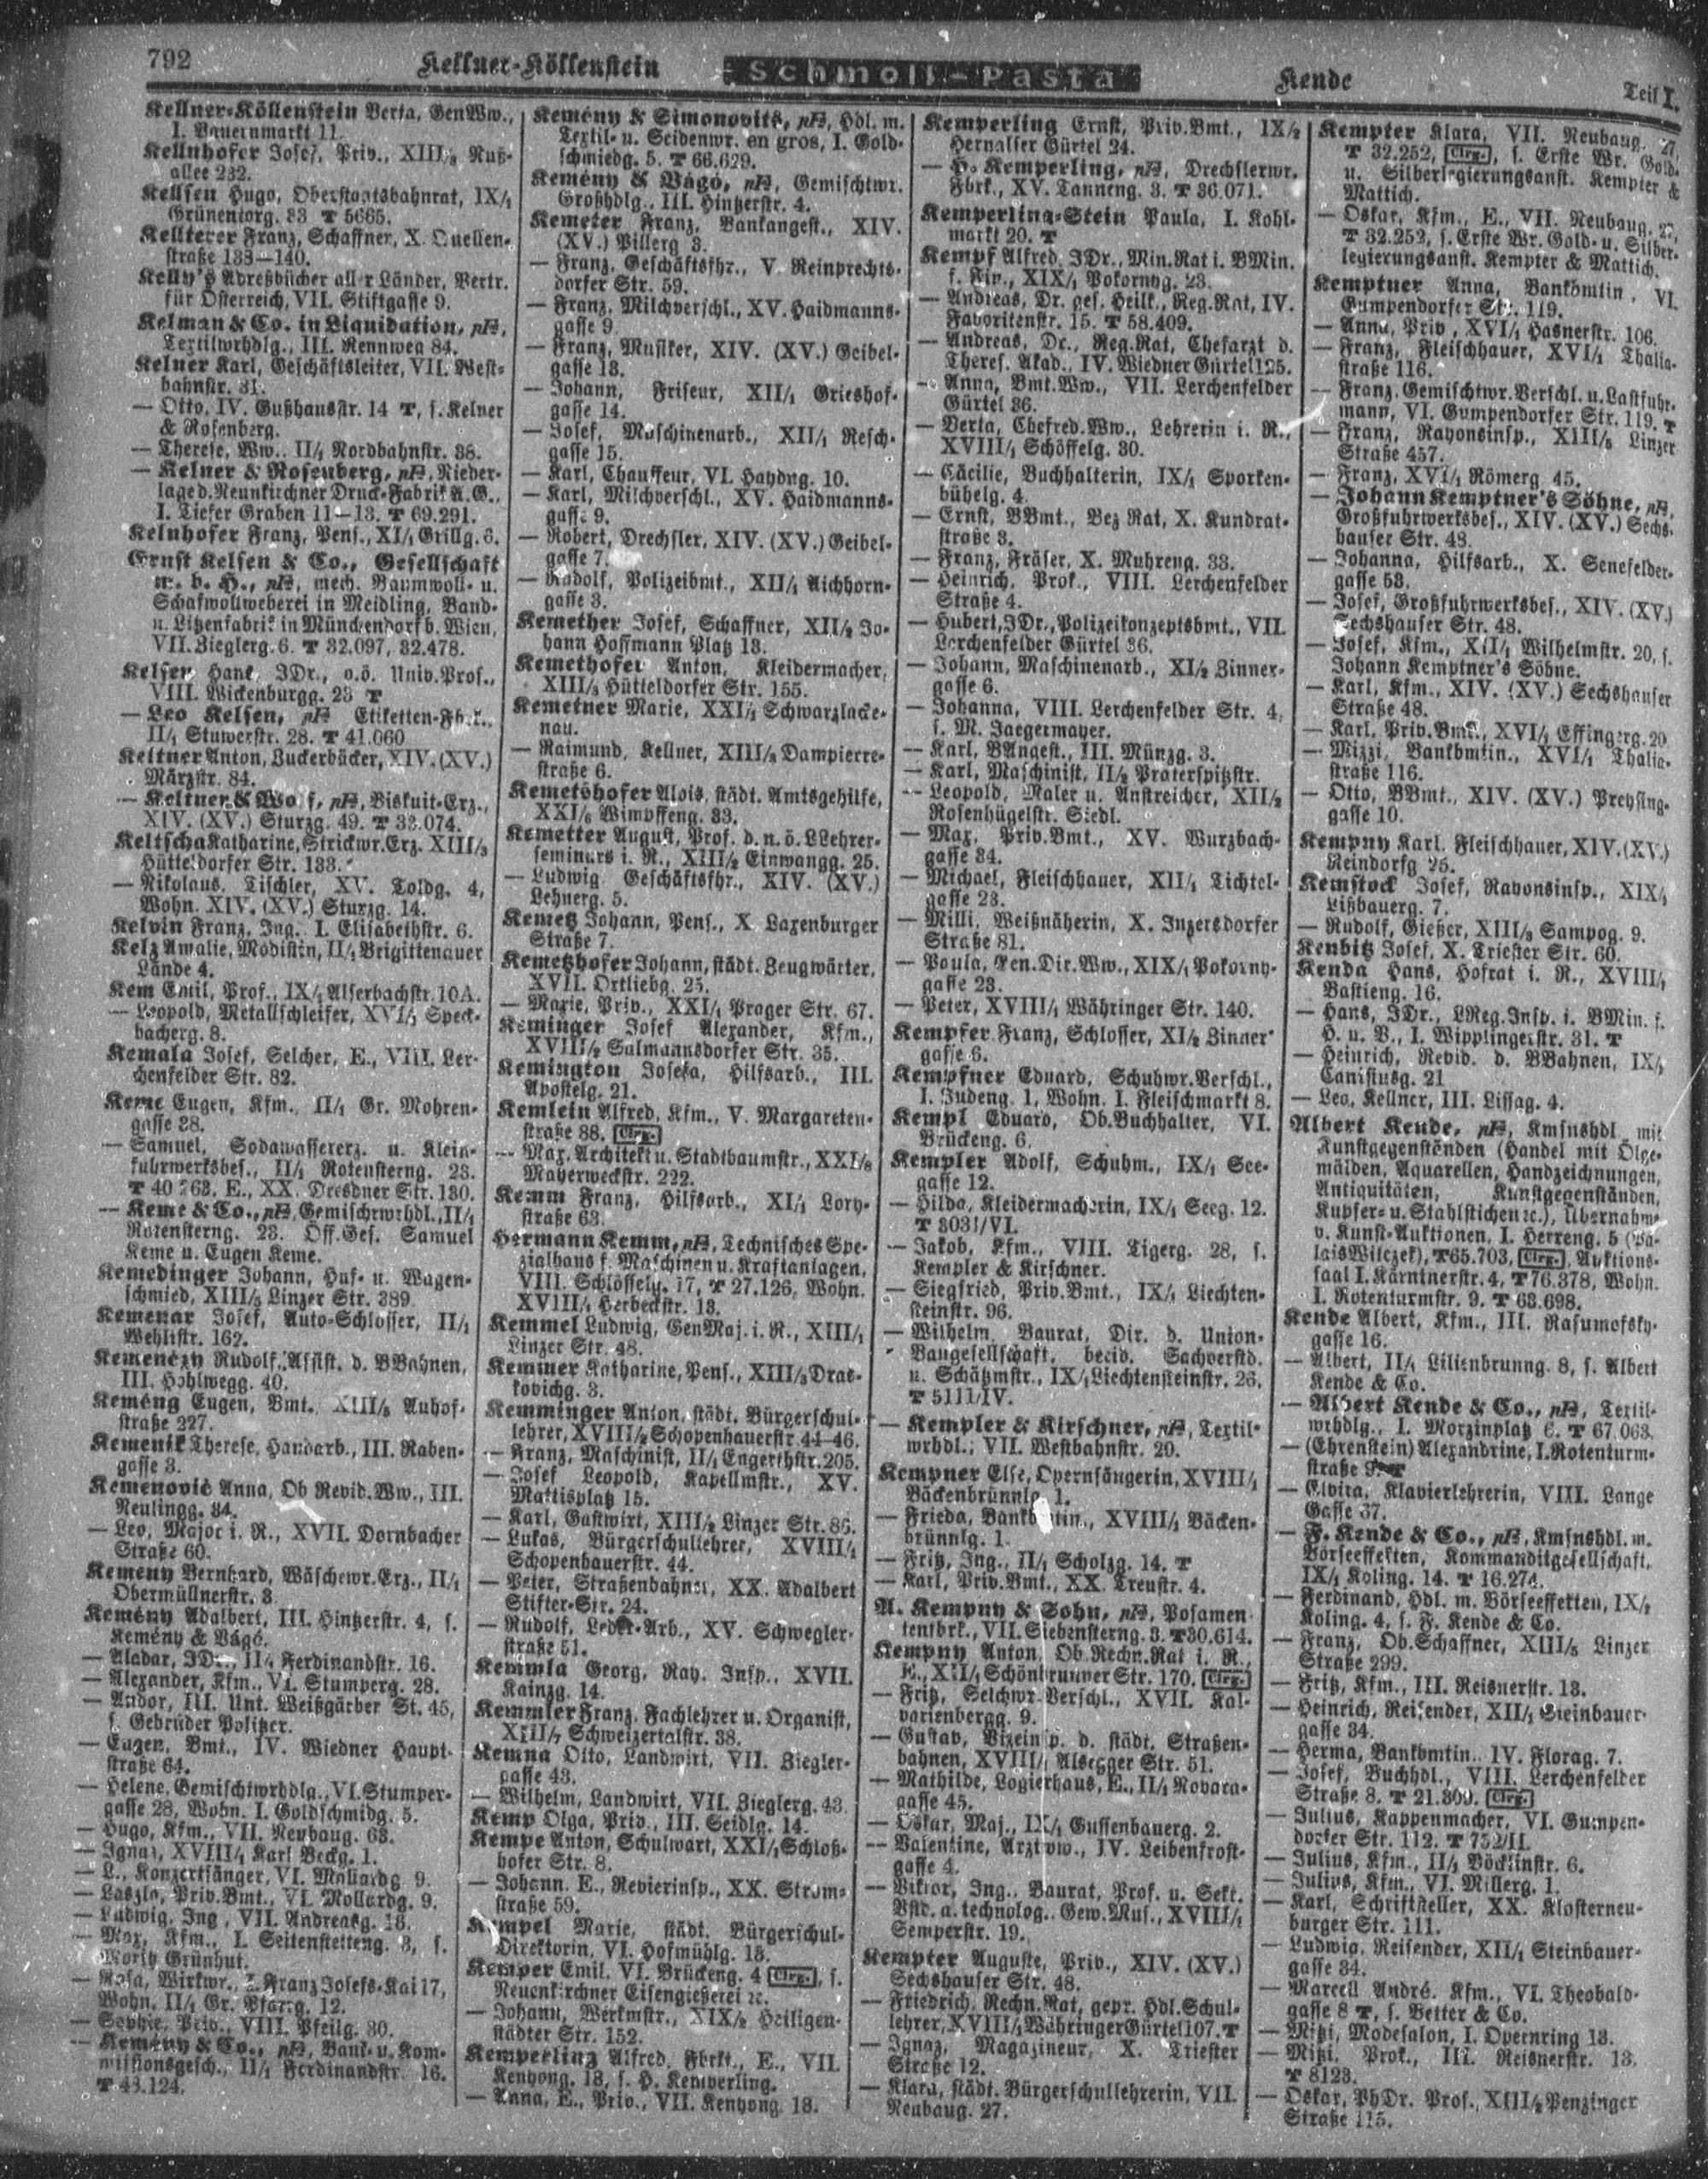 792
Kellner-Köllenstein
Schmoll-Pasta
Kende
Teil I.
Kellner-Köllenstein Berta, GenWw.,
I. Bauernmarkt 11.
Kellnhofer Josef, Priv., XIII/3 Nuß-
allee 232.
Kellsen Hugo, Oberstaatsbahnrat, IX/1
Grünentorg. 33 T 5665.
Kellterer Franz, Schaffner, X. Quellen-
straße 138—140.
Kelly's Adreßbücher aller Länder, Vertr.
für Österreich, VII. Stiftgasse 9.
Kelman & Co. in Liquidation, pF,
Textilwrhdlg., III. Rennweg 84.
Kelner Karl, Geschäftsleiter, VII. West-
bahnstr. 31.
— Otto, IV. Gußhausstr. 14 T, s. Kelner
& Rosenberg.
— Therese, Ww., II/1 Nordbahnstr. 38.
— Kelner & Rosenberg, pF, Nieder-
lage d. Neunkirchner Druck-Fabrik A.G.,
I. Tiefer Graben 11—13. T 69.291.
Kelnhofer Franz, Pens., XI/1 Grillg. 6.
Ernst Kelsen & Co., Gesellschaft
m. b. H., pF, mech. Baumwoll- u.
Schafwollweberei in Meidling, Band-
u. Litzenfabrik in Münchendorf b. Wien,
VII. Zieglerg. 6. T 32.097, 32.478.
Kelsen Hans, JDr., o.ö. Univ.Prof.,
VIII. Wickenburgg. 23 T
— Leo Kelsen, pF Etiketten-Fbrk.,
II/1 Stuwerstr. 28. T 41.060
Keltner Anton, Zuckerbäcker, XIV. (XV.)
Märzstr. 84.
— Keltner & Wolf, pF, Biskuit-Erz.,
XIV. (XV.) Sturzg. 49. T 33.074.
Keltscha Katharine, Strickwr.Erz. XIII/3
Hütteldorfer Str. 133.
— Nikolaus, Tischler, XV. Toldg. 4,
Wohn. XIV. (XV.) Sturzg. 14.
Kelvin Franz, Ing. I. Elisabethstr. 6.
Kelz Amalie, Modistin, II/1 Brigittenauer
Lände 4.
Kem Emil, Prof., IX/1 Alserbachstr. 10A.
— Leopold, Metallschleifer, XVI/1 Speck-
bacherg. 8.
Kemala Josef, Selcher, E., VIII. Ler-
chenfelder Str. 82.
Keme Eugen, Kfm., II/1 Gr. Mohren-
gasse 28.
— Samuel, Sodawassererz. u. Klein-
fuhrwerksbes., II/1 Rotensterng. 23.
T 40 263, E., XX. Dresdner Str. 130.
— Keme & Co., pF, Gemischtwrhdl., II/1
Rotensterng. 23. Off.Ges. Samuel
Keme u. Eugen Keme.
Kemedinger Johann, Huf- u. Wagen-
schmied, XIII/5 Linzer Str. 389
Kemenar Josef, Auto-Schlosser, II/1
Wehlistr. 162.
Kemenczy Rudolf, Assist. d. BBahnen,
III. Hohlwegg. 40.
Kemény Eugen, Bmt. XIII/5 Auhof-
straße 227.
Kemenik Therese, Handarb., III. Raben-
gasse 3.
Kemenović Anna, Ob Revid.Ww., III.
Neulingg. 34.
— Leo, Major i. R., XVII. Dornbacher
Straße 60.
Kemeny Bernhard, Wäschewr.Erz., II/1
Obermüllnerstr. 3.
Kemény Adalbert, III. Hintzerstr. 4, s.
Kemény & Vágó.
— Aladar, JDr., II/1 Ferdinandstr. 16.
— Alexander, Kfm., VI. Stumperg. 28.
— Andor, III. Unt. Weißgärber St. 45,
s. Gebrüder Politzer.
— Eugen, Bmt., IV. Wiedner Haupt-
straße 64.
— Helene, Gemischtwrhdlg., VI. Stumper-
gasse 28, Wohn. I. Goldschmidg. 5.
— Hugo, Kfm., VII. Neubaug. 63.
— Ignaz, XVIII/1 Karl Beckg. 1.
— L., Konzertsänger, VI. Mollardg. 9.
— Laszlo, Priv.Bmt., VI. Mollardg. 9.
— Ludwig, Ing., VII. Andreasg. 18.
— Max, Kfm., I. Seitenstetteng. 3, s.
Moritz Grünhut.
— Rosa, Wirkwr., I. Franz Josefs-Kai 17,
Wohn. II/1 Gr. Pfarrg. 12.
— Sophie, Priv., VIII. Pfeilg. 30.
— Kemény & Co., pF, Bank- u. Kom-
missionsgesch., II/1 Ferdinandstr. 16.
T 43.124.
Kemény & Simonovits, pF, Hdl. m.
Textil- u. Seidenwr. en gros, I. Gold-
schmiedg. 5. T 66.629.
Kemény & Vágó, pF, Gemischtwr.
Großhdlg., III. Hintzerstr. 4.
Kemeter Franz, Bankangest., XIV.
(XV.) Pillerg 3.
— Franz, Geschäftsfhr., V. Reinprechts-
dorfer Str. 59.
— Franz, Milchverschl., XV. Haidmanns-
gasse 9
— Franz, Musiker, XIV. (XV.) Geibel-
gasse 13.
— Johann, Friseur, XII/1 Grieshof-
gasse 14.
— Josef, Maschinenarb., XII/1 Resch-
gasse 15.
— Karl, Chauffeur, VI. Haydng. 10.
— Karl, Milchverschl., XV. Haidmanns-
gasse 9.
— Robert, Drechsler, XIV. (XV.) Geibel-
gasse 7.
— Rudolf, Polizeibmt., XII/1 Aichhorn-
gasse 3.
Kemether Josef, Schaffner, XII/2 Jo-
hann Hoffmann Platz 13.
Kemethofer Anton, Kleidermacher,
XIII/3 Hütteldorfer Str. 155.
Kemetner Marie, XXI/1 Schwarzlacke-
nau.
— Raimund, Kellner, XIII/3 Dampierre-
straße 6.
Kemetshofer Alois, städt. Amtsgehilfe,
XXI/6 Wimpffeng. 33.
Kemetter August, Prof. d. n.ö. LLehrer-
seminars i. R., XIII/2 Einwangg. 25.
— Ludwig Geschäftsfhr., XIV. (XV.)
Lehnerg. 5.
Kemetz Johann, Pens., X Laxenburger
Straße 7.
Kemetzhofer Johann, städt. Zeugwärter,
XVII. Ortliebg. 25.
— Marie, Priv., XXI/1 Prager Str. 67.
Keminger Josef Alexander, Kfm.,
XVIII/2 Salmannsdorfer Str. 35.
Kemington Josefa, Hilfsarb., III.
Apostelg. 21.
Kemlein Alfred, Kfm., V. Margareten-
straße 88. Clrg.
— Max, Architekt u. Stadtbaumstr., XXI/8
Mayerweckstr. 222.
Kemm Franz, Hilfsarb., XI/1 Lory-
straße 63.
Hermann Kemm, pF, Technisches Spe-
zialhaus f. Maschinen u. Kraftanlagen,
VIII. Schlösselg. 17, T 27.126, Wohn.
XVIII/1 Herbeckstr. 13.
Kemmel Ludwig, GenMaj. i. R., XIII/1
Linzer Str. 48.
Kemmer Katharine, Pens., XIII/3 Dras-
kovichg. 3.
Kemminger Anton, städt. Bürgerschul-
lehrer, XVIII/2 Schopenhauerstr. 44—46.
— Franz, Maschinist, II/1 Engerthstr. 205.
— Josef Leopold, Kapellmstr., XV.
Mattisplatz 15.
— Karl, Gastwirt, XIII/2 Linzer Str. 86.
— Lukas, Bürgerschullehrer, XVIII/1
Schopenhauerstr. 44.
— Peter, Straßenbahner, XX. Adalbert
Stifter-Str. 24.
— Rudolf, Leder-Arb., XV. Schwegler-
straße 51.
Kemmla Georg, Ray. Insp., XVII.
Kainzg. 14.
Kemmler Franz, Fachlehrer u. Organist,
XIII/7 Schweizertalstr. 38.
Kemna Otto, Landwirt, VII. Ziegler-
gasse 43.
— Wilhelm, Landwirt, VII. Zieglerg. 43
Kemp Olga, Priv., III. Seidlg. 14.
Kempe Anton, Schulwart, XXI/1 Schloß-
hofer Str. 8.
— Johann, E., Revierinsp., XX. Strom-
straße 59.
Kempel Marie, städt. Bürgerschul-
Direktorin, VI. Hofmühlg. 13.
Kemper Emil, VI. Brückeng. 4 Clrg., s.
Neuenkirchner Eisengießerei 2c.
— Johann, Werkmstr., XIX/2 Heiligen-
städter Str. 152.
Kemperling Alfred, Fbrkt., E., VII.
Kenyong. 18, s. H. Kemperling.
— Anna, E., Priv., VII. Kenyong. 18.
Kemperling Ernst, Priv.Bmt., IX/2
Hernalser Gürtel 24.
— H. Kemperling, pF, Drechslerwr.
Fbrk., XV. Tanneng. 3. T 36.071.
Kemperling-Stein Paula, I. Kohl-
markt 20. T
Kempf Alfred, JDr., Min.Rat i. BMin.
f. Fin., XIX/1 Pokornyg. 23.
— Andreas, Dr. ges. Heilk., Reg.Rat, IV.
Favoritenstr. 15. T 58.409.
— Andreas, Dr., Reg.Rat, Chefarzt d.
Theres. Akad., IV. Wiedner Gürtel 125.
— Anna, Bmt.Ww., VII. Lerchenfelder
Gürtel 36.
— Berta, Chefred.Ww., Lehrerin i. R.,
XVIII/1 Schöffelg. 30.
— Cäcilie, Buchhalterin, IX/1 Sporken-
bühelg. 4.
— Ernst, BBmt., Bez Rat, X. Kundrat-
straße 3.
— Franz, Fräser, X. Muhreng. 33.
— Heinrich, Prok., VIII. Lerchenfelder
Straße 4.
— Hubert, JDr., Polizeikonzeptsbmt., VII.
Lerchenfelder Gürtel 36.
— Johann, Maschinenarb., XI/2 Zinner-
gasse 6.
— Johanna, VIII. Lerchenfelder Str. 4,
s. M. Jaegermayer.
— Karl, BAngest., III. Münzg. 3.
— Karl, Maschinist, II/2 Praterspitzstr.
— Leopold, Maler u. Anstreicher, XII/2
Rosenhügelstr. Siedl.
— Max, Priv.Bmt., XV. Wurzbach-
gasse 34.
— Michael, Fleischhauer, XII/1 Tichtel-
gasse 23.
— Milli, Weißnäherin, X. Inzersdorfer
Straße 81.
— Paula, Gen.Dir.Ww., XIX/1 Pokorny-
gasse 23.
— Peter, XVIII/1 Währinger Str. 140.
Kempfer Franz, Schlosser, XI/2 Zinner-
gasse 6.
Kempfner Eduard, Schuhwr.Verschl.,
I. Judeng. 1, Wohn. I. Fleischmarkt 8.
Kempl Eduard, Ob.Buchhalter, VI.
Brückeng. 6.
Kempler Adolf, Schuhm., IX/1 See-
gasse 12.
— Hilda, Kleidermacherin, IX/1 Seeg. 12.
T 8031/VI.
— Jakob, Kfm., VIII. Tigerg. 28, s.
Kempler & Kirschner.
— Siegfried, Priv.Bmt., IX/1 Liechten-
steinstr. 96.
— Wilhelm, Baurat, Dir. d. Union-
Baugesellschaft, beeid. Sachverstd.
u. Schätzmstr., IX/1 Liechtensteinstr. 26.
T 5111/IV.
— Kempler & Kirschner, pF, Textil-
wrhdl., VII. Westbahnstr. 20.
Kempner Else, Opernsängerin, XVIII/1
Bäckenbrünnlg. 1.
— Frieda, XVIII/1 Bäcken-
brünnlg. 1.
— Fritz, Ing., II/1 Scholzg. 14. T
— Karl, Priv.Bmt., XX. Treustr. 4.
A. Kempny & Sohn, pF, Posamen-
tenfbrk., VII. Siebensterng. 3. T 30.614.
Kempny Anton, Ob.Rechn.Rat i. R.,
E., XII/1 Schönbrunner Str. 170. Clrg.
— Fritz, Selchwr.Verschl., XVII. Kal-
varienbergg. 9.
— Gustav, Vizeinsp. d. städt. Straßen-
bahnen, XVIII/1 Alsegger Str. 51.
— Mathilde, Logierhaus, E., II/1 Novara-
gasse 45.
— Oskar, Maj., IX/1 Gussenbauerg. 2.
— Valentine, Arztww., IV. Leibenfrost-
gasse 4.
— Viktor, Ing., Baurat, Prof. u. Sekt.
Vstd. a. technolog. Gew.Mus., XVIII/1
Semperstr. 19.
Kempter Auguste, Priv., XIV. (XV.)
Sechshauser Str. 48.
— Friedrich, Rechn.Rat, gepr. Hdl.Schul-
lehrer, XVIII/1 Währinger Gürtel 107. T
— Ignaz, Magazineur, X. Triester
Straße 12.
— Klara, städt. Bürgerschullehrerin, VII.
Neubaug. 27.
Kempter Klara, VII. Neubaug. 27,
T 32.252, Clrg., s. Erste Wr. Gold-
u. Silberlegierungsanst. Kempter &
Mattich.
— Oskar, Kfm., E., VII. Neubaug. 27,
T 32.252, s. Erste Wr. Gold- u. Silber-
legierungsanst. Kempter & Mattich.
Kemptner Anna, Bankbmtin, VI.
Gumpendorfer Str. 119.
— Anna, Priv., XVI/1 Hasnerstr. 106.
— Franz, Fleischhauer, XVI/1 Thalia-
straße 116.
— Franz, Gemischtwr.Verschl. u. Lastfuhr-
mann, VI. Gumpendorfer Str. 119. T
— Franz, Rayonsinsp., XIII/5 Linzer
Straße 457.
— Franz, XVI/1 Römerg 45.
— Johann Kemptner's Söhne, pF,
Großfuhrwerksbes., XIV. (XV.) Sechs-
hauser Str. 48.
— Johanna, Hilfsarb., X. Senefelder-
gasse 53.
— Josef, Großfuhrwerksbes., XIV. (XV.)
Sechshauser Str. 48.
— Josef, Kfm., XII/1 Wilhelmstr. 20, s.
Johann Kemptner's Söhne.
— Karl, Kfm., XIV. (XV.) Sechshauser
Straße 48.
— Karl, Priv.Bmt., XVI/1 Effingerg. 20
— Mizzi, Bankbmtin., XVI/1 Thalia-
straße 116.
— Otto, BBmt., XIV. (XV.) Preysing-
gasse 10.
Kempny Karl, Fleischhauer, XIV. (XV.)
Reindorfg 25.
Kemstock Josef, Rayonsinsp., XIX/1
Lißbauerg. 7.
— Rudolf, Gießer, XIII/3 Sampog. 9.
Kenbitz Josef, X. Triester Str. 60.
Kenda Hans, Hofrat i. R., XVIII/1
Bastieng. 16.
— Hans, JDr., LReg.Insp. i. BMin. f.
H. u. V., I. Wipplingerstr. 31. T
— Heinrich, Revid. d. BBahnen, IX/1
Canisiusg. 21
— Leo, Kellner, III. Lissag. 4.
Albert Kende, pF, Kmsnshdl. mit
Kunstgegenständen (Handel mit Ölge-
mälden, Aquarellen, Handzeichnungen,
Antiquitäten, Kunstgegenständen,
Kupfer- u. Stahlstichen 2c.), Übernahme
v. Kunst-Auktionen, I. Herreng. 5 (Pa-
lais Wilczek), T 65.703, Clrg., Auktions-
saal I. Kärntnerstr. 4, T 76.378, Wohn.
I. Rotenturmstr. 9. T 63.698.
Kende Albert, Kfm., III. Rasumofsky-
gasse 16.
— Albert, II/1 Lilienbrunng. 8, s. Albert
Kende & Co.
— Albert Kende & Co., pF, Textil-
wrhdlg., I. Morzinplatz 6. T 67.063.
— (Ehrenstein) Alexandrine, I. Rotenturm-
straße 9. T
— Elvira, Klavierlehrerin, VIII. Lange
Gasse 37.
— F. Kende & Co., pF, Kmsnshdl. m.
Börseeffekten, Kommanditgesellschaft,
IX/1 Koling. 14. T 16.274.
— Ferdinand, Hdl. m. Börseeffekten, IX/2
Koling. 4, s. F. Kende & Co.
— Franz, Ob.Schaffner, XIII/5 Linzer
Straße 299.
— Fritz, Kfm., III. Reisnerstr. 13.
— Heinrich, Reisender, XII/1 Steinbauer-
gasse 34.
— Herma, Bankbmtin., IV. Florag. 7.
— Josef, Buchhdl., VIII. Lerchenfelder
Straße 8. T 21.309. Clrg.
— Julius, Kappenmacher, VI. Gumpen-
dorfer Str. 112. T 752/II.
— Julius, Kfm., II/1 Böcklinstr. 6.
— Julius, Kfm., VI. Millerg. 1.
— Karl, Schriftsteller, XX. Klosterneu-
burger Str. 111.
— Ludwig, Reisender, XII/1 Steinbauer-
gasse 34.
— Marcell André, Kfm., VI. Theobald-
gasse 8 T, s. Vetter & Co.
— Mitzi, Modesalon, I. Opernring 13.
— Mitzi, Prok., III. Reisnerstr. 13.
T 8123.
— Oskar, PhDr. Prof., XIII/2 Penzinger
Straße 115.